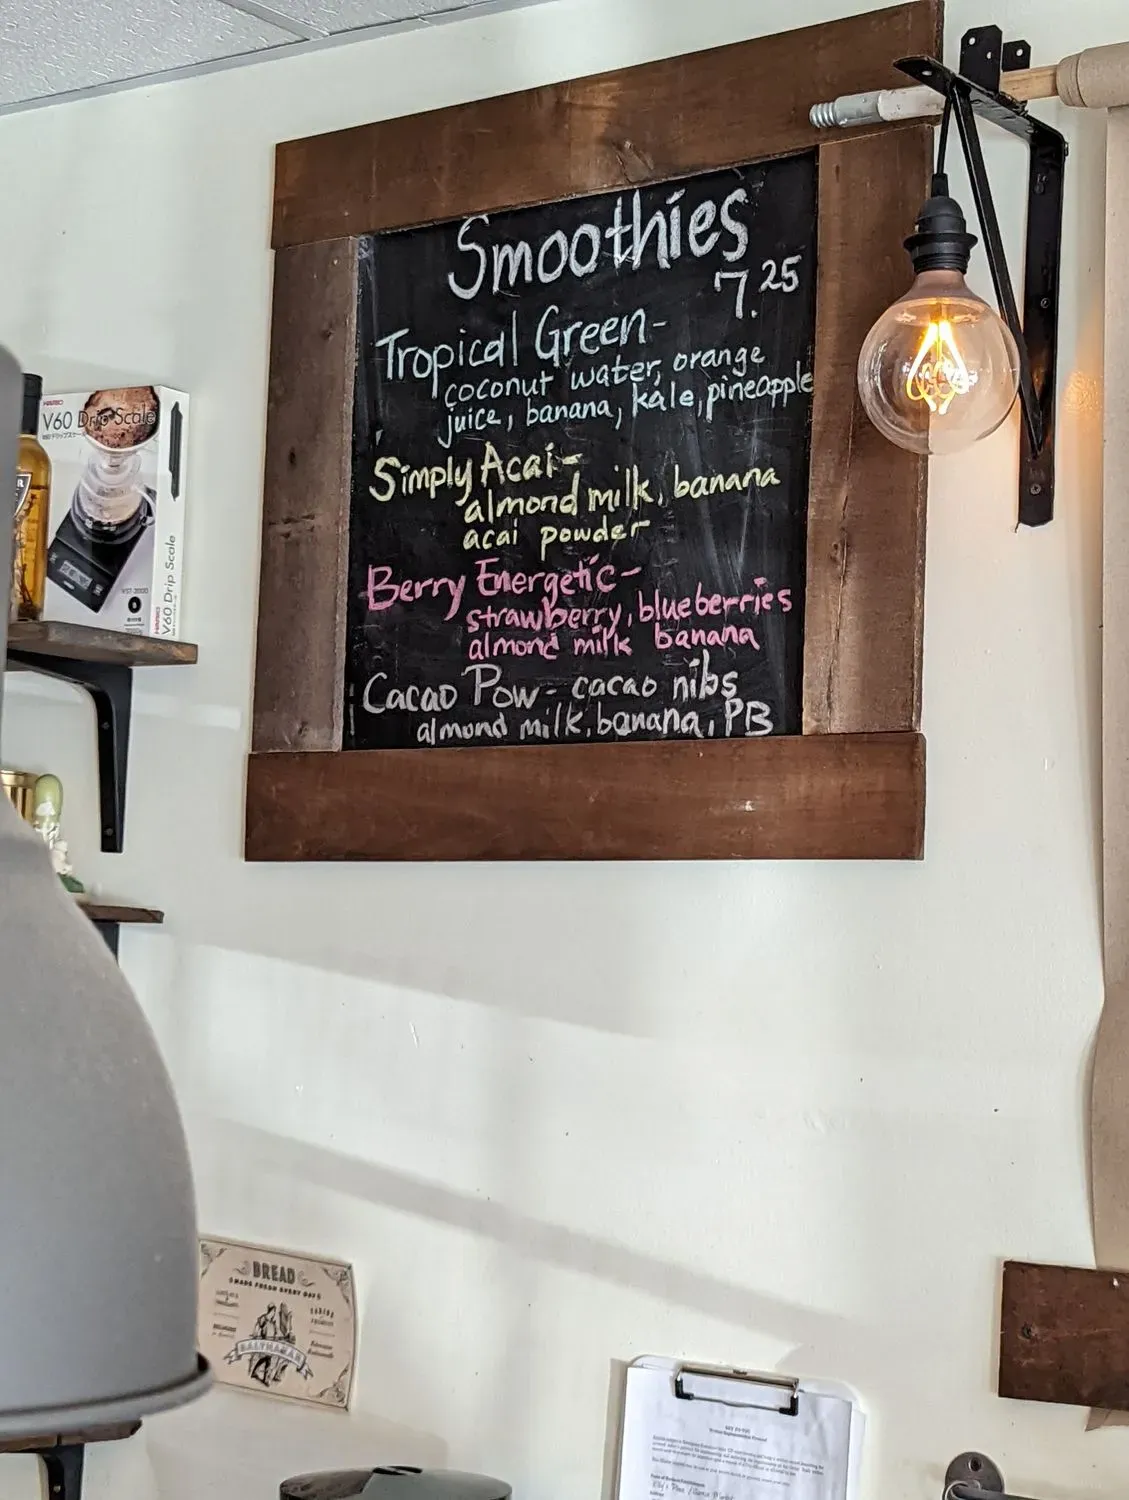 Smoothies
7.25
Tropical Green-
coconut water, orange
juice, banana, kale, pineapple
Simply Acai-
almond milk, banana
acai powder
Berry Energetic-
strawberry, blueberries
almond milk banana
Cacao Pow- cacao nibs
almond milk, banana, PB
HARIO
V60 Drip Scale
VST-2000
HARIO
V60 Drip Scale
BREAD
MADE FRESH EVERY DAY